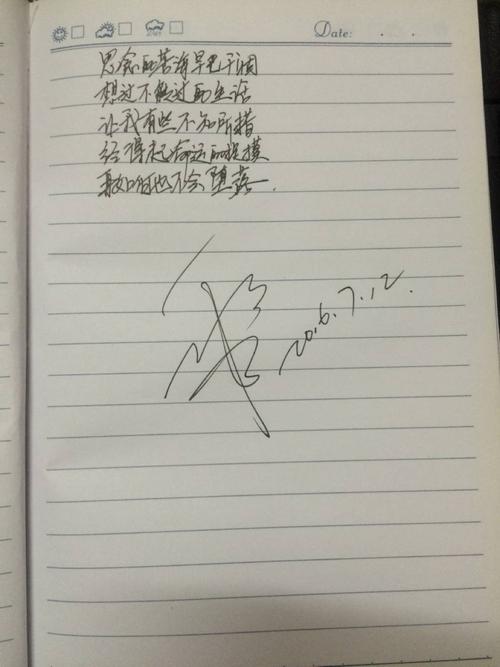 Date: . .
思念的苦海早已干涸
想过不能过的生活
让我有些不知所措
经得起命运的捉摸
再如何也不会堕落.
2016.7.12.